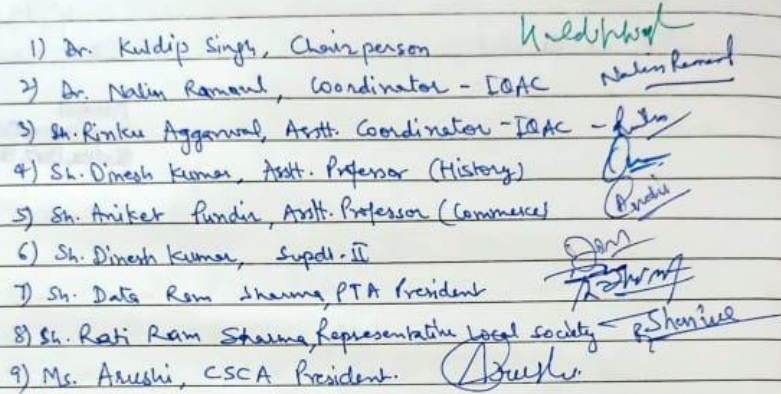 1) Dr. Kuldip Singh, Chairperson Kuldip Singh
2) Dr. Nalin Ramaul, Coordinator - IQAC Nalin Ramaul
3) Sh. Rinku Aggarwal, Asstt. Coordinator - IQAC -
4) Sh. Dinesh Kumar, Asstt. Professor (History)
5) Sh. Aniket Pundir, Asstt. Professor (Commerce)
6) Sh. Dinesh Kumar, Supdt. II
7) Sh. Data Ram Sharma, PTA President
8) Sh. Rati Ram Sharma, Representative Local Society
9) Ms. Arushi, CSCA President.